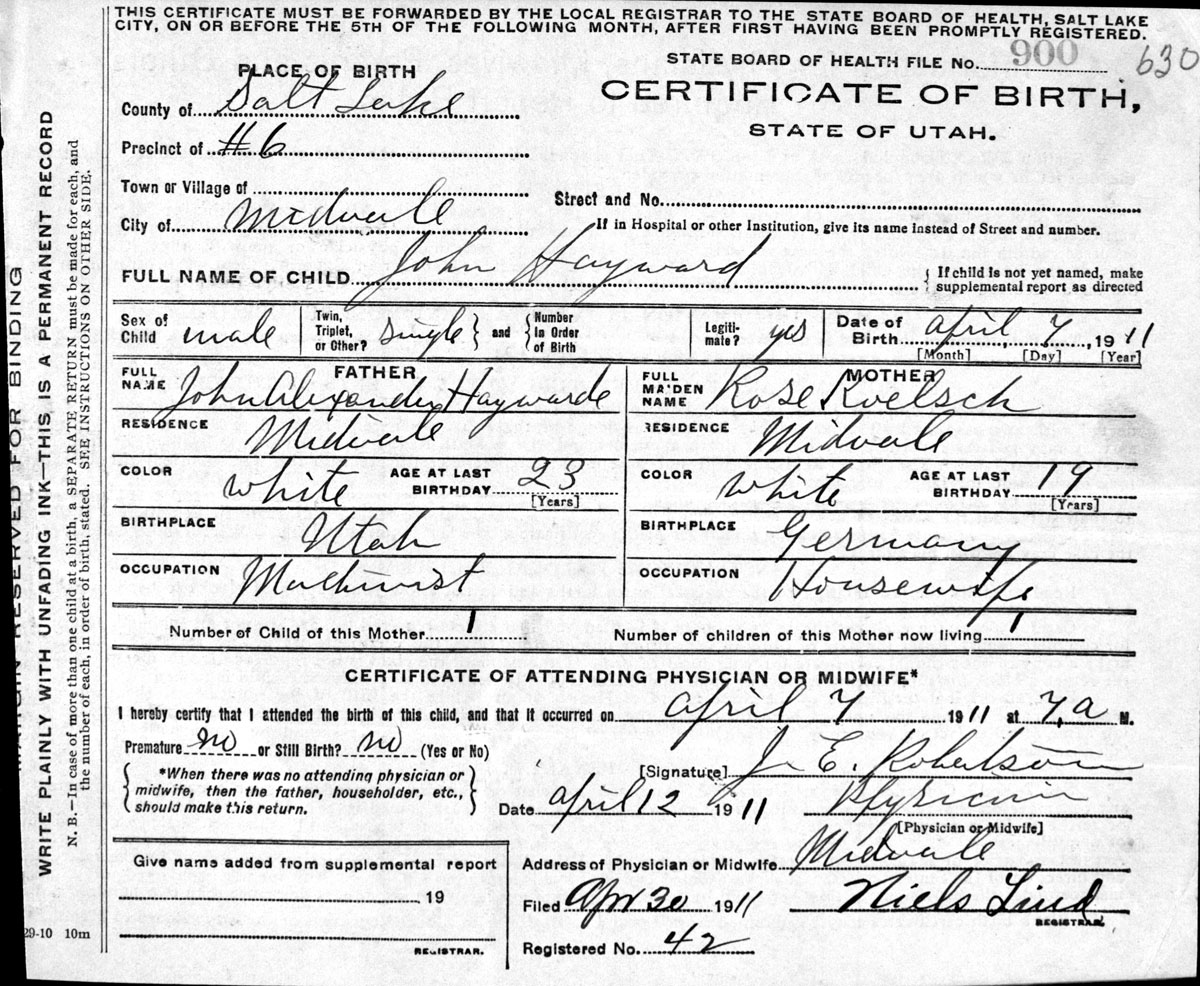 THIS CERTIFICATE MUST BE FORWARDED BY THE LOCAL REGISTRAR TO THE STATE BOARD OF HEALTH, SALT LAKE
CITY, ON OR BEFORE THE 5TH OF THE FOLLOWING MONTH, AFTER FIRST HAVING BEEN PROMPTLY REGISTERED.
STATE BOARD OF HEALTH FILE No. 900 630
CERTIFICATE OF BIRTH,
STATE OF UTAH.
PLACE OF BIRTH
County of Salt Lake
Precinct of #6
Town or Village of
Street and No.
City of Midvale
If in Hospital or other Institution, give its name instead of Street and number.
FULL NAME OF CHILD John Hayward
{ If child is not yet named, make
supplemental report as directed
Sex of Child male
Twin, Triplet, or Other? single } and { Number in Order of Birth
Legitimate? yes
Date of Birth April 7, 1911
[Month] [Day] [Year]
FATHER
FULL NAME John Alexander Haywarde
RESIDENCE Midvale
COLOR white AGE AT LAST BIRTHDAY 23
[Years]
BIRTHPLACE Utah
OCCUPATION Machinist
MOTHER
FULL MAIDEN NAME Rose Koelsch
RESIDENCE Midvale
COLOR white AGE AT LAST BIRTHDAY 19
[Years]
BIRTHPLACE Germany
OCCUPATION Housewife
Number of Child of this Mother 1 Number of children of this Mother now living 1
CERTIFICATE OF ATTENDING PHYSICIAN OR MIDWIFE*
I hereby certify that I attended the birth of this child, and that it occurred on April 7 1911 at 7, a M.
Premature no or Still Birth? no (Yes or No)
{ *When there was no attending physician or
midwife, then the father, householder, etc.,
should make this return. }
[Signature] J. E. Robertson
Date April 12 1911 Physician
[Physician or Midwife]
Give name added from supplemental report
19
REGISTRAR.
Address of Physician or Midwife Midvale
Filed Apr 30 1911 Niels Lind
REGISTRAR.
Registered No. 42
MARGIN RESERVED FOR BINDING
WRITE PLAINLY WITH UNFADING INK—THIS IS A PERMANENT RECORD
N. B.—In case of more than one child at a birth, a SEPARATE RETURN must be made for each, and
the number of each, in order of birth, stated. SEE INSTRUCTIONS ON OTHER SIDE.
29-10 10m